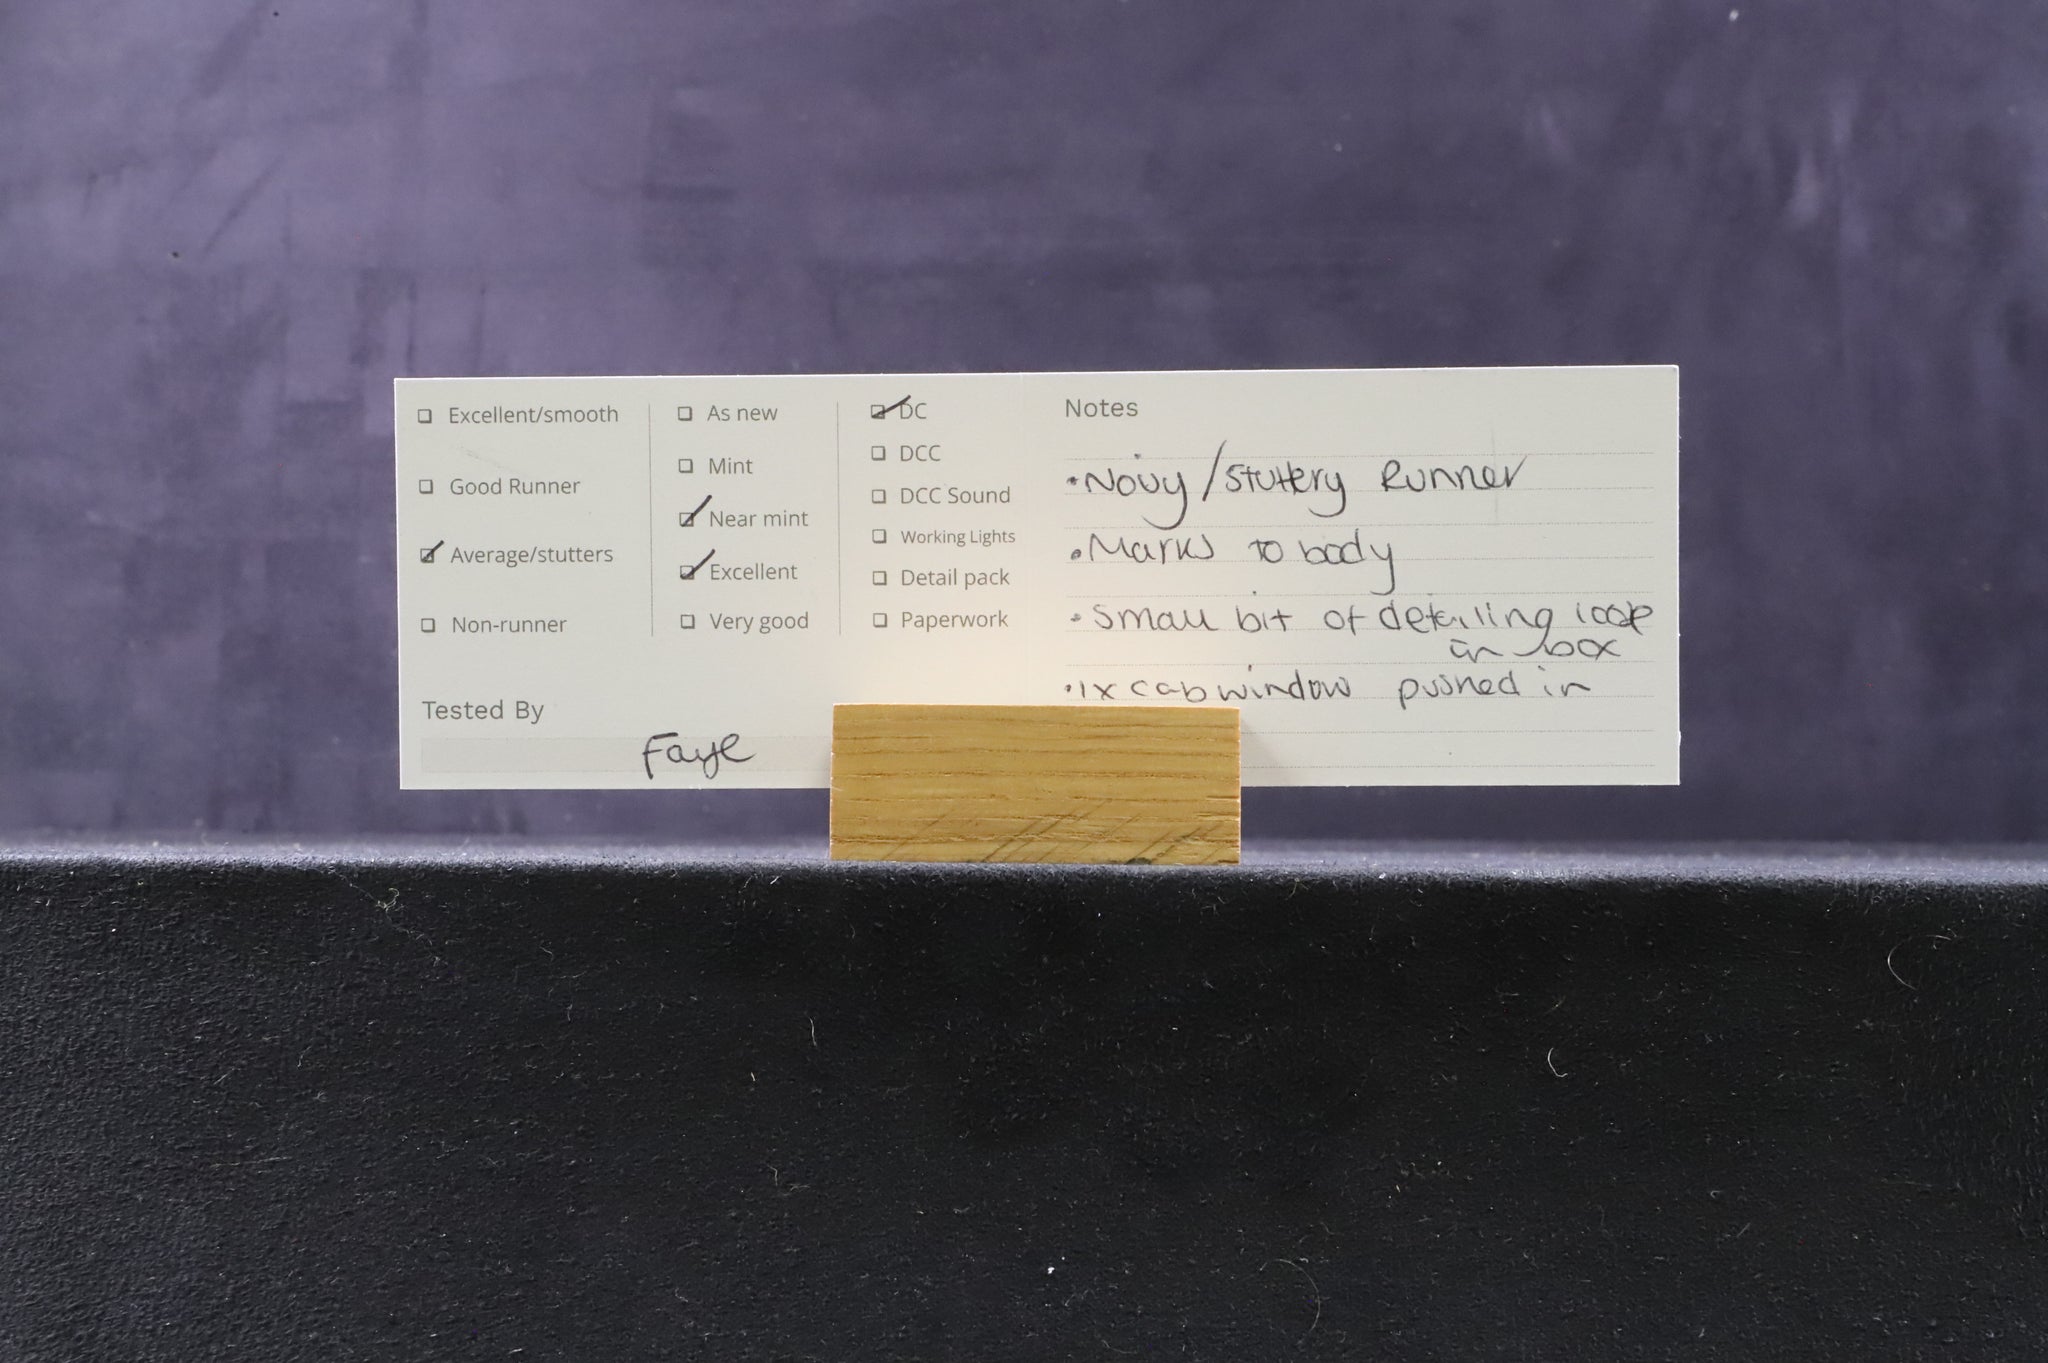 Excellent/smooth
Good Runner
Average/stutters
Non-runner
As new
Mint
Near mint
Excellent
Very good
DC
DCC
DCC Sound
Working Lights
Detail pack
Paperwork
Tested By
Faye
Notes
• Noisy/stuttery Runner
• Marks to body
• Small bit of detailing loose
in box
• 1x cab window pushed in